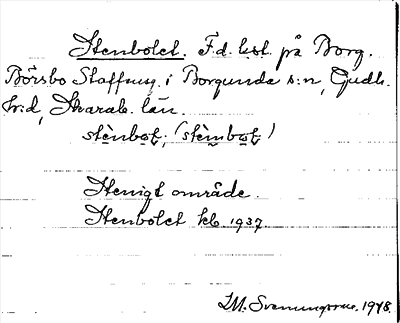 Stenbolet. F.d. lot. på Borg.
Börsbo Staffansg. i Borgunda s:n, Gudh.
h:d, Skarab. län.
stènbo̱t; (stèmbo̱t)
Stenigt område.
Stenbolet kb 1937.
I.M. Svenungsson. 1948.